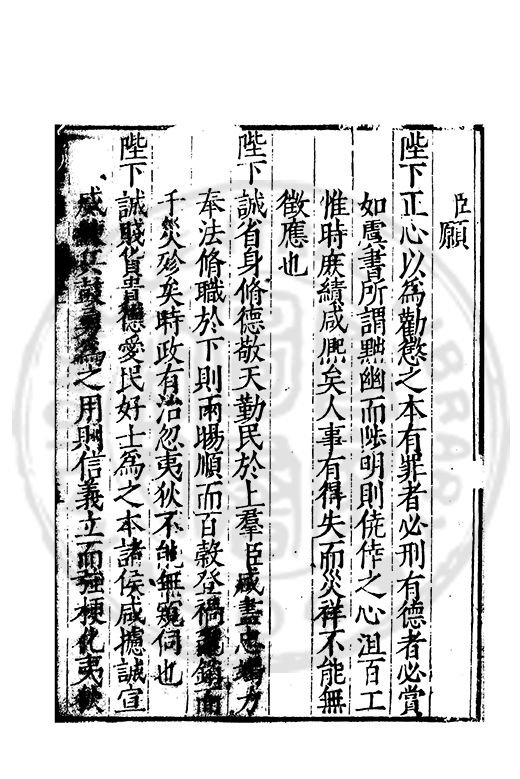 臣願
陛下正心以為勸懲之本有罪者必刑有德者必賞
如虞書所謂黜幽而陟明則僥倖之心沮百工
惟時庶績咸熈矣人事有得失而災祥不能無
徵應也
陛下誠省身脩德敬天勤民於上羣臣咸盡忠竭力
奉法脩職於下則雨暘順而百榖登禍亂銷而
干災沴矣時政有治忽夷狄不能無窺伺也
陛下誠賤貨貴德愛民好士為之本諸侯咸攄誠宣
威 兵 為之用則信義立而強梗化夷狄